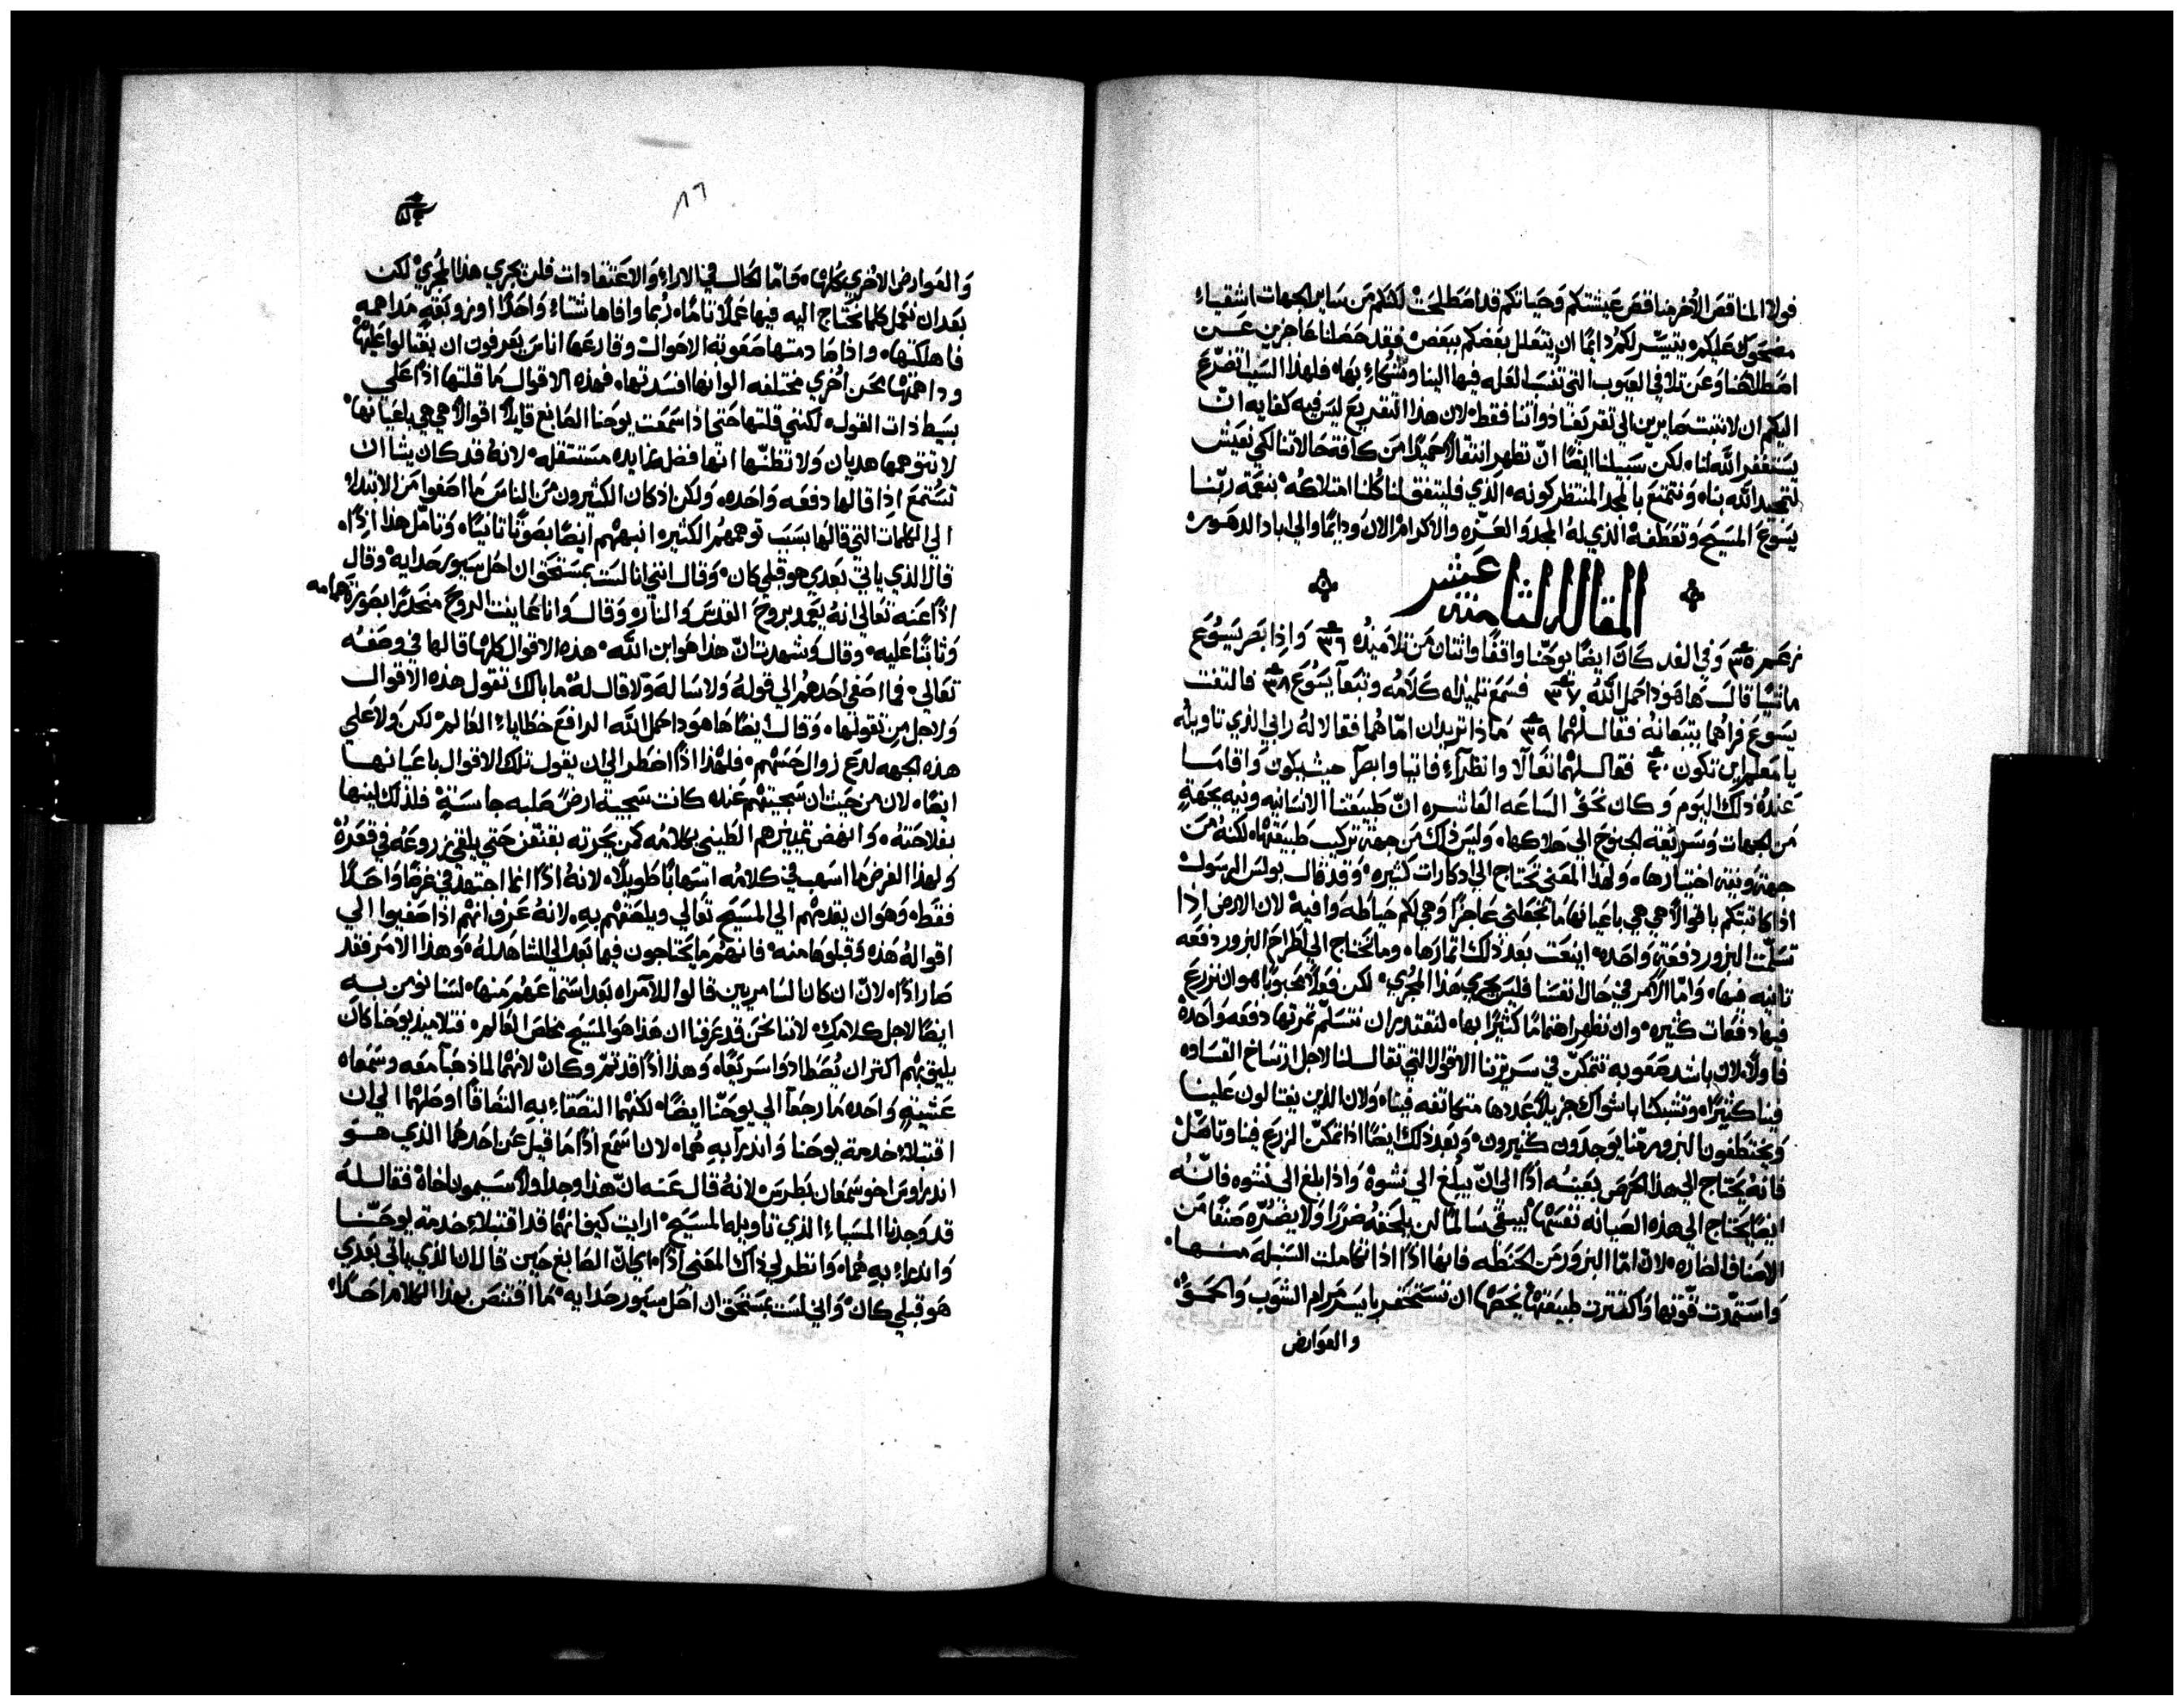 فولا المناقص الأخر مناقص عيشتكم وحياتكم قد اصطلحت لكنكم من ساير الجهات اشقياء
مضحوك عليكم يتيسر لكم دايمًا ان يتعلل بعضكم ببعض فقد حصلنا عاجزين عن
اصطلاحنا وعن تلافي العيوب التي تنسب العله فيها الينا ونشكاء بها فلهذا السبب اتضرع
اليكم ان لا نثبت صابرين الي تقريعنا ذواتنا فقط لان هذا التقريع ليس فيه كفايه ان
يستغفر الله لنا لكن سبيلنا ايضًا ان نظهر انتقالًا حميدًا من كافة حالاتنا لكي نعيش
لتمجيد الله بنا ونتمتع بالمجد المنتظر كونه الذي فليتفق لنا كلنا امتلاكه بنعمة ربنا
يسوع المسيح وتعطفه الذي له المجد والعزه والاكرام الان ودايمًا والي اباد الدهور
المقاله الثامنه عشر
وفي الغد كان ايضًا يوحنا واقفًا واثنان من تلاميذه ٣٦ واذ ابصر يسوع
ماشيًا قال ها هوذا حمل الله ٣٧ فسمع تلميذاه كلامه وتبعا يسوع ٣٨ فالتفت
يسوع فراهما يتبعانه فقال لهما ٣٩ ماذا تريدان امّا هما فقالا له رابي الذي تاويله
يا معلم اين تكون ٤٠ فقال لهما تعالا وانظرا فاتيا وابصرا حيث يكون واقاما
عنده ذلك اليوم وكان نحو الساعه العاشره انّ طبيعتنا الانسانيه ونيه بجهةٍ
من الجهات وسريعة الجنوح الي هلاكها وليس ذلك من جهة تركيب طبيعتها لكنه من
جهة ونية اختيارها ولهذا المعني تحتاج الي ادكارات كثيره وقد قال بولس الرسول
اذا كاتبتكم باقوالٍ هي هي باعيانها ما تجعلني عاجزًا وهي لكم حياطه وافيه لان الارض اذا
تسلمت البزور دفعةً واحده اينعت بعد ذلك اثمارها وما تحتاج الي اطراح البزور دفعه
ثانيه فيها وامّا الأمر في حال انفسنا فليس يجري هذا المجري لكن فعلًا محبوبًا هو ان نزرع
فيها دفعات كثيره وان نظهر اهتمامًا كثيرًا بها لنقتدر ان نتسلم ثمرتها دفعه واحدة
فاولًا لان باشد صعوبه تتمكن في سريرتنا الاقوال التي تقال لنا لاجل ارتساخ القساوه
فينا كثيرًا وتشبكنا باشواك جزيلًا عددها متكاثفه فينا ولان الذين يغتالون علينا
ويختطفون البزور منّا يوجدون كثيرون وبعد ذلك ايضًا اذا تمكن الزرع فينا وتاصّل
فانه يحتاج الي هذا الحرص بعينه اذًا الي انّ يبلغ الي نشوه واذا بلغ الي نشوه فانّه
ايضًا يحتاج الي هذه الصيانه نفسها ليبقي سالمًا لن يلحقه ضررًا ولا يضرّه صنفًا من
الاصناف الضاره لان امّا البزور من الحنطه فانها اذًا اذا تكاملت السنبله منها
واستمدت قوتها واكتفت طبيعتها يخصها ان تستحقر بايسر مرام الشوب والحمق
والعوارض
٨٦
والعوارض الاخري كلها وامّا الحال في الاراء والاعتقادات فلن يجري هذا المجري لكن
بعد ان نعمل كلما نحتاج اليه فيها عملًا تامًا ربما وافاها شتاء واحدًا او زوبعةٍ مداهمه
فاهلكتها واذا صادمتها صعوبة الاحوال وقارعها اناس يعرفون ان يغتالوا عليها
وداهمتها محن اخري مختلفه الوانها افسدتها فهذه الاقوال ما قلتها اذًا علي
بسيط ذات القول لكنني قلتها حتي اذا سمعت يوحنا الصابغ قايلًا اقوالًا هي هي باعيانها
لا تتوهمها هديان ولا تظنّها انها فضله زايده مستثقله لانه قد كان يشا ان
تستمع اذا قالها دفعه واحده ولكن اذ كان الكثيرون من الناس ما اصغوا من الابتداء
الي الكلمات التي قالها بسبب توهمهم الكثيره انبههم ايضًا بصوتًا ثانيًا وتامل هذا اذًا
قال الذي ياتي بعدي هو قبلي كان وقال انني انا لست بمستحق ان احل سيور حدايه وقال
اذًا عنه تعالي انه يعمد بروح القدس والنار وقال وانا عاينت الروح منحدرًا بصورة حمامه
وثابتًا عليه وقال وشهدت انّ هذا هو ابن الله هذه الاقوال كلها قالها في وصفه
تعالي فما اصغي احدهم الي قوله ولا ساله ولا قال له ما بالك تقول هذه الاقوال
ولاجل من تقولها وقال ايضًا ها هوذا حمل الله الرافع خطاياء العالم لكن ولا علي
هذه الجهه لدع زوال حسهم فلهذا اذًا اضطر الي ان يقول تلك الاقوال باعيانها
ايضًا لان من حيث ان سجيتهم عنده كانت سجية ارضٍ صلبه جاسئةٍ فلذلك لينها
بفلاحته وانهض تمييزهم الطيني بكلامه كمن يحرثه حتي يلقي زروعه في قعره
ولهذا الغرض ما اسهب في كلامه اسهابًا طويلًا لانه اذًا انما اجتهد في غرضًا واحدًا
فقط وهو ان يقدمهم الي المسيح تعالي ويلصقهم به لانه عرف انهم اذا صغيوا الي
اقواله هذه وقبلوها منه فانهم ما يحتاجون فيما بعد الي الشاهد له وهذا الامر فقد
صار اذًا لانّ ان كان السامريين قالوا للأمراه بعد استماعهم منها لسنا نومن به
ايضًا لاجل كلامك لاننا نحن قد عرفنا ان هذا هو المسيح مخلص العالم فتلاميذ يوحنا كان
يليق بهم اكثر ان يُصطادوا سريعًا وهذا اذًا قد تمّ وكان لانهما لما ذهبا معه وسمعاه
عشيةٍ واحده ما رجعا الي يوحنا ايضًا لكنهما التصقاء به التصاقًا اوصلهما الي ان
اقتبلاء خدمة يوحنا وانذرا به هما لان اسمع اذًا ما قيل عن احدهما الذي هو
اندراوس اخو سمعان بطرس لانه قال عنه انّ هذا وجد اولًا سيمون اخاه فقال له
قد وجدنا المسياء الذي تاويله المسيح ارايت كيف انهما قد اقتبلاء خدمة يوحنا
وانذراء به هما وانظر لي ذاك المعني اذًا اي انّ الصابغ حين قال ان الذي ياتي بعدي
هو قبلي كان واني لست بمستحق ان احل سيور حدايه ما اقتنص بهذا الكلام احدًا